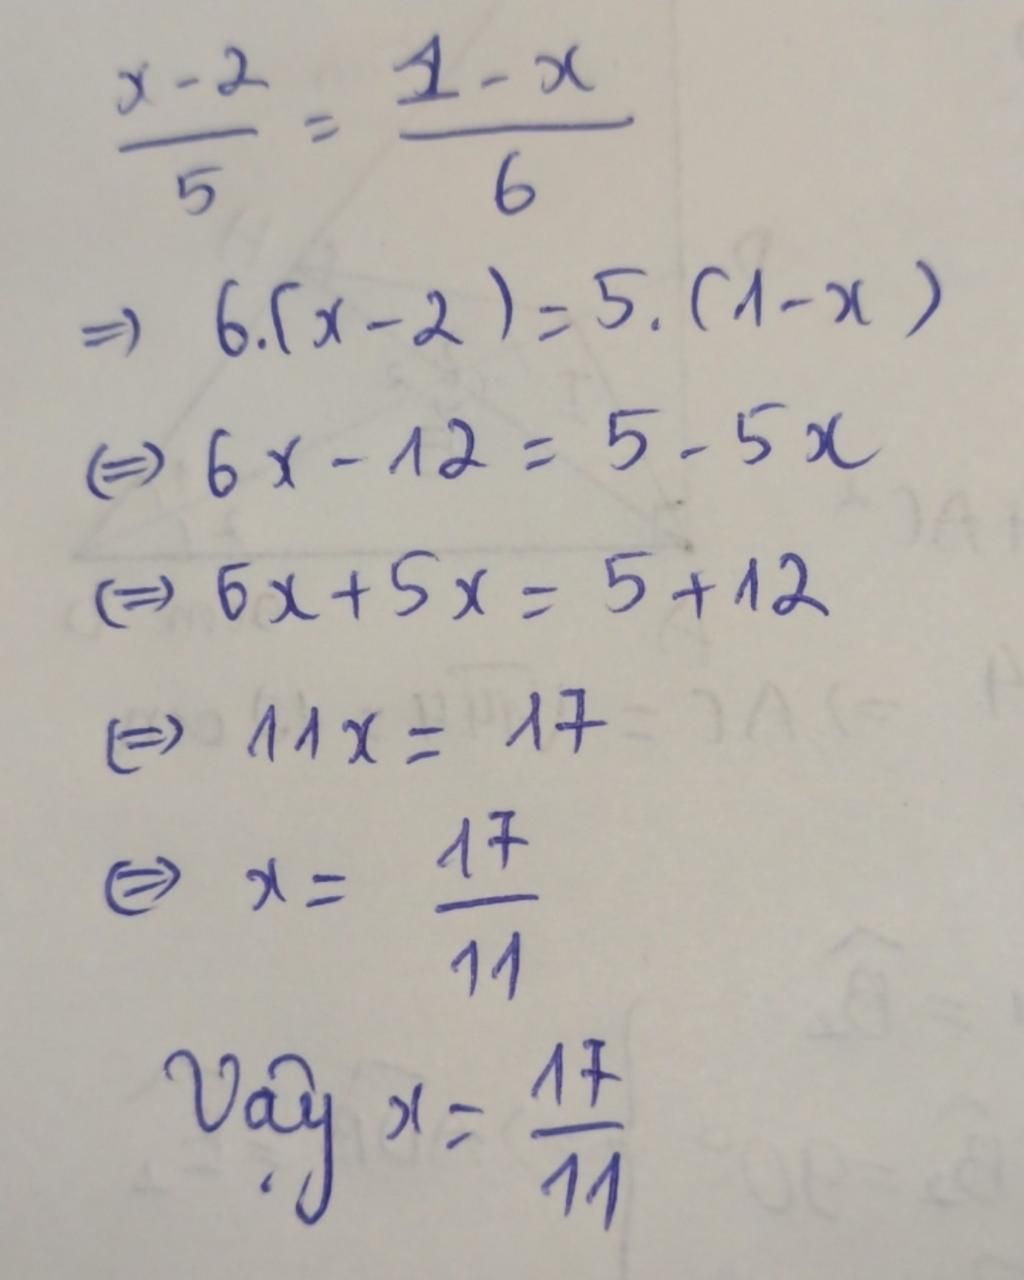 x - 2 / 5 = 1 - x / 6
=> 6.(x - 2) = 5.(1 - x)
<=> 6x - 12 = 5 - 5x
<=> 6x + 5x = 5 + 12
<=> 11x = 17
<=> x = 17 / 11
Vậy x = 17 / 11